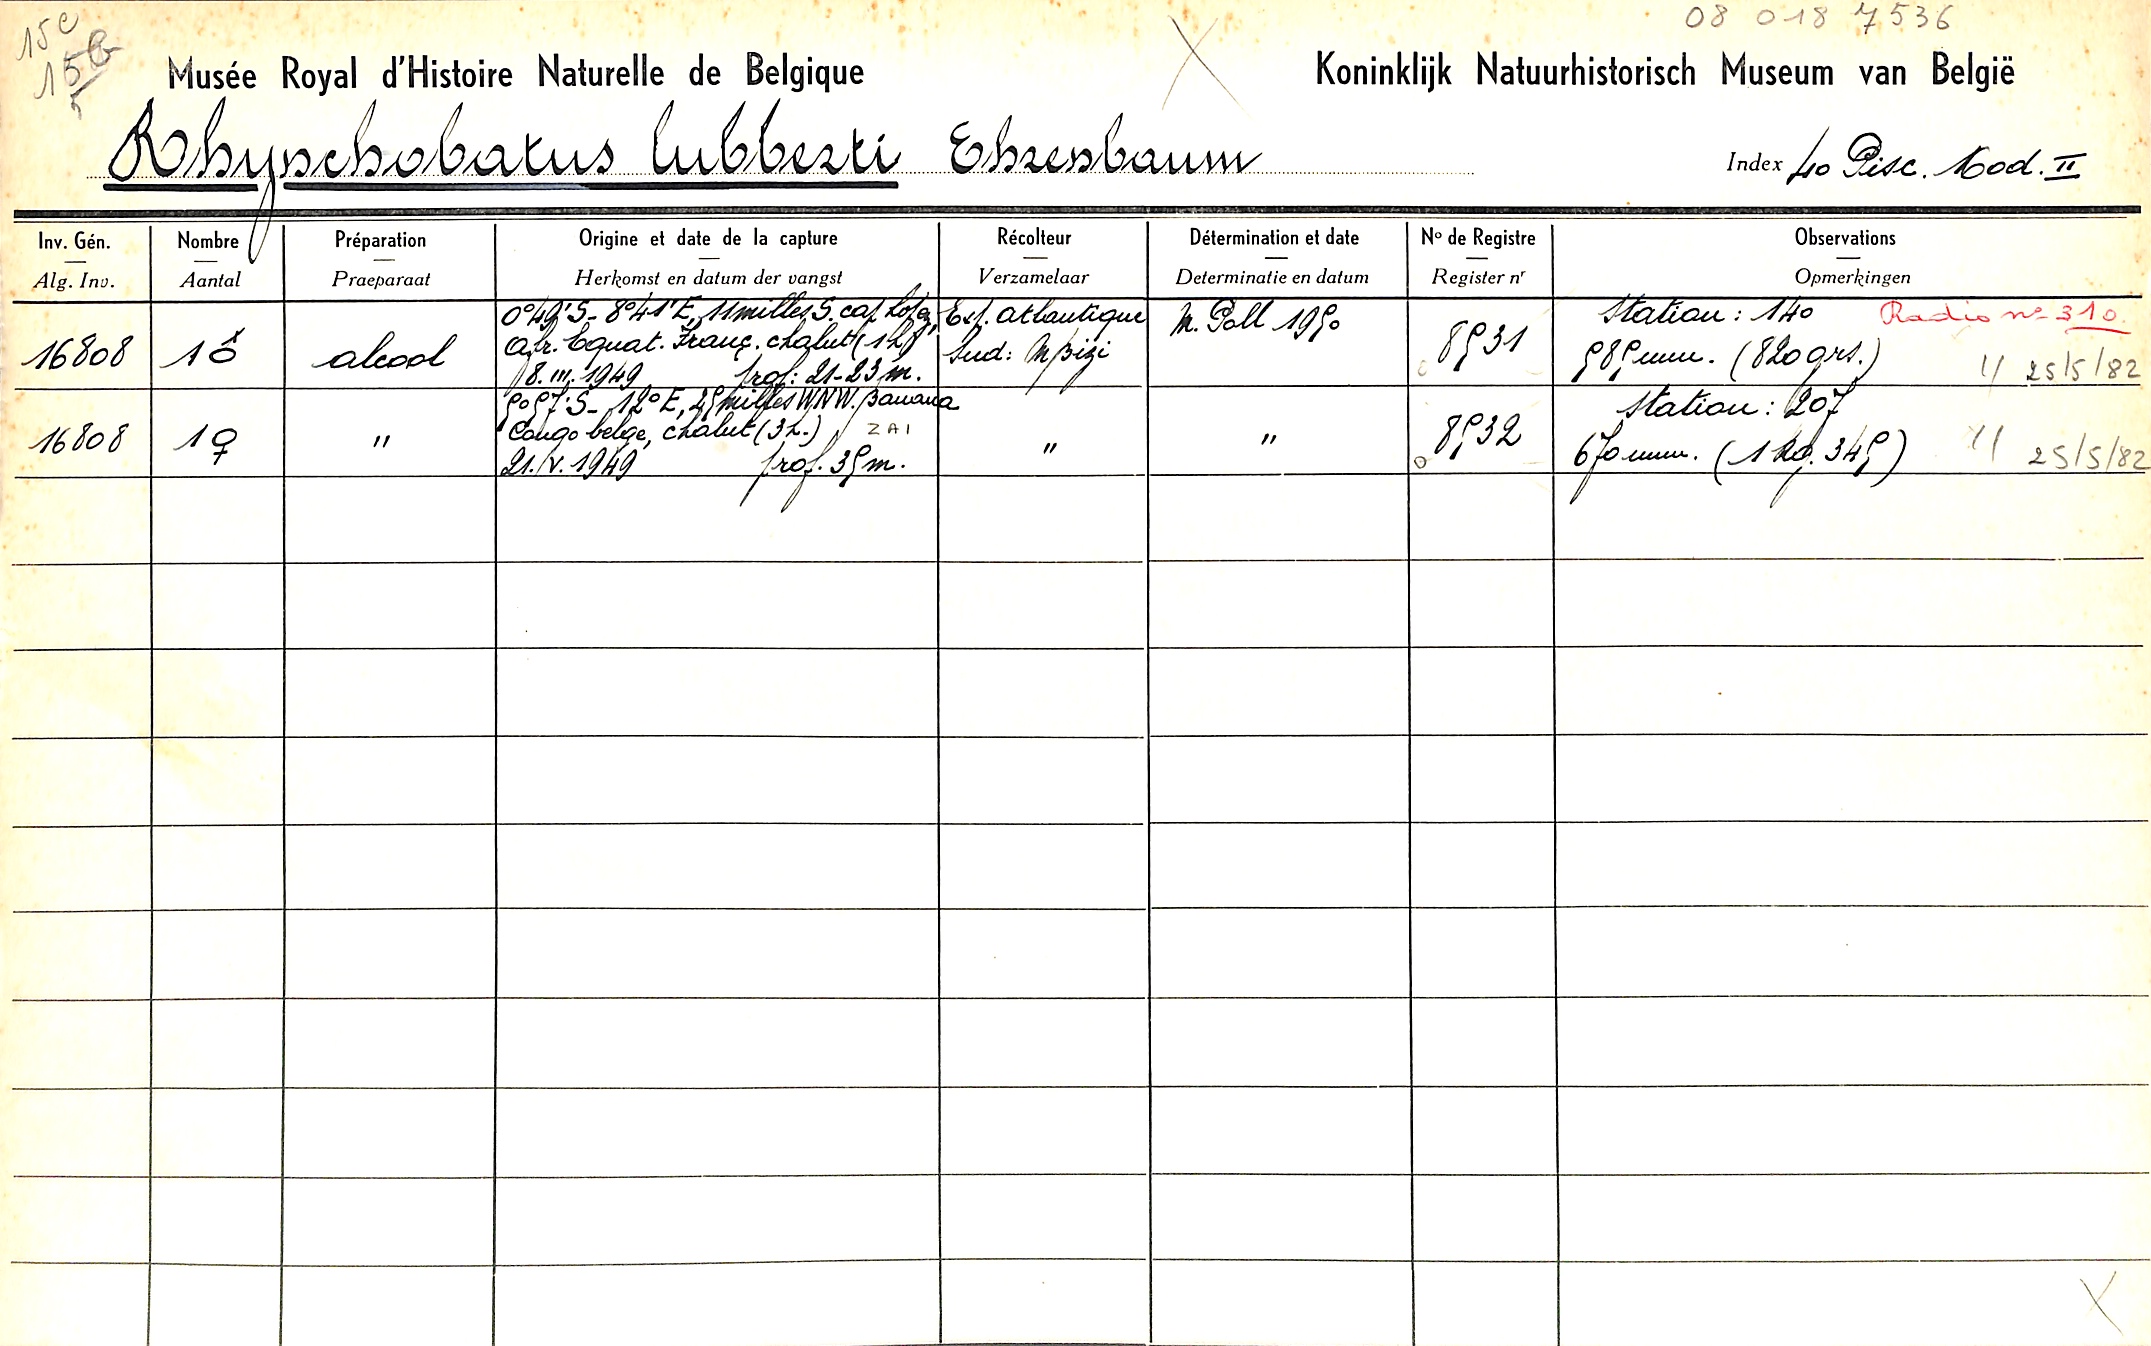 15c
15b
5
08 018 7536
Musée Royal d'Histoire Naturelle de Belgique
Koninklijk Natuurhistorisch Museum van België
Rhynchobatus lubberti Ehrenbaum
Index 40 Pisc. Mod. II
Inv. Gén. Nombre Préparation Origine et date de la capture Récolteur Détermination et date No de Registre Observations
Alg. Inv. Aantal Praeparaat Herkomst en datum der vangst Verzamelaar Determinatie en datum Register nr Opmerkingen
16808 1 ♂ alcool
0°49'S-8°41'E, 11 milles S. cap Lopez,
Afr. Equat. Franç. chalut (1h)
8.III.1949 prof: 21-23 m.
Exp. Atlantique
Sud: M'Bizi
M. Poll 1950
8531
Station: 140 Radio no 310
585 mm. (820 grs.) 25/5/82
16808 1 ♀ "
5°57'S-12°E, 25 milles WNW. Banana
Congo belge, chalut (3h.) ZAI
21.V.1949 prof. 35 m.
"
"
8532
Station: 207
670 mm. (1 kg. 345) 25/5/82